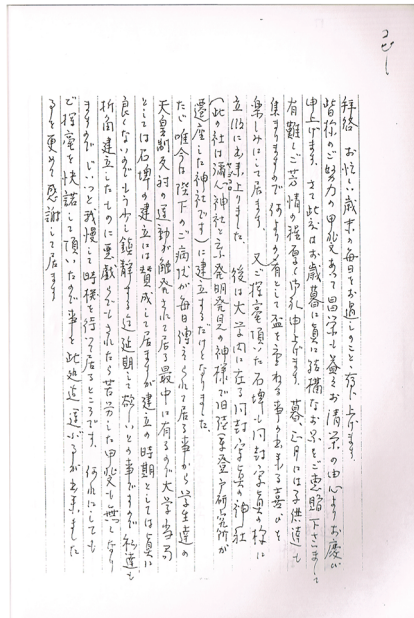 コピー
拝啓 お忙しい歳末の毎日をお過しのことと存じ上げます。
皆様のご努力の甲斐あって田学も益々お清栄の由心よりお慶び
申上げます。さて此度はお歳暮に真に結構なお品をご恵贈下さいまして
有難くご芳情の程厚く御礼申上げます。暮、正月には子供達も
集まりますので何よりの肴として盃を重ねる事の出来る喜びを
楽しみにして居ます。又ご揮毫頂いた石碑も同封写真の様に
立派に出来上りました。後は大学内に在る同封写真の神社
(此の社は彌心神社と云い発明発見の神様で旧陸軍登戸研究所が
遷座した神社です)に建立するだけとなりました。
ただ唯今は陛下のご病状が毎日傳えられて居る事から学生達の
天皇制反対の運動が触発されて居る最中に有るので大学当局
としては石碑の建立には賛成して居ますが建立の時期としては真に
良くないのでもう少し鎮静する迄延期して欲しいとの事ですので私達も
折角建立したものに悪戯でもされたら苦労した甲斐も無くなり
ますのでじいっと我慢して時機を待って居るところです。何れにしても
ご揮毫を快諾して頂いたので事を此処迄運ぶ事が出来ました
事を更めて感謝して居ます